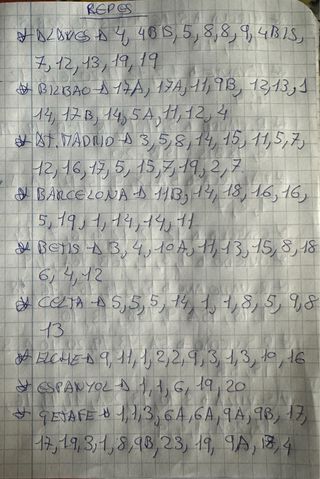 REPES
ALAVES → 4, 4BIS, 5, 8, 8, 9, 4BIS,
7, 12, 13, 19, 19
BILBAO → 17A, 17A, 11, 9B, 12, 13, 1
14, 17B, 14, 5A, 11, 12, 4
AT. MADRID → 3, 5, 8, 14, 15, 11, 5, 7,
12, 16, 17, 5, 15, 7, 19, 2, 7.
BARCELONA → 11B, 14, 18, 16, 16,
5, 19, 1, 14, 14, 11
BETIS → 3, 4, 10A, 11, 13, 15, 8, 18
6, 4, 12
CELTA → 5, 5, 5, 14, 1, 1, 8, 5, 9, 8
13
ELCHE → 9, 11, 1, 2, 2, 9, 3, 1, 3, 10, 16
ESPANYOL → 1, 1, 6, 19, 20
GETAFE → 1, 1, 3, 6A, 6A, 9A, 9B, 17,
17, 19, 3, 1, 8, 9B, 23, 19, 9A, 18, 4